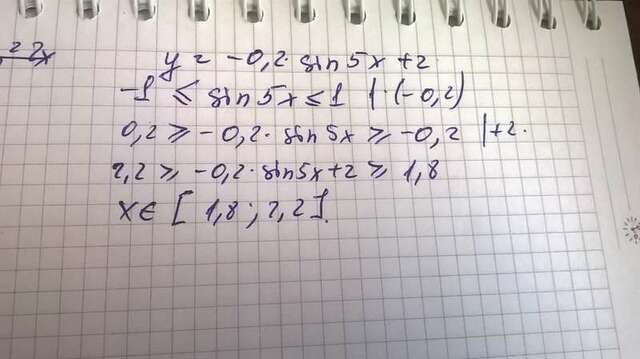 y = -0,2 · sin 5x + 2
-1 ≤ sin 5x ≤ 1 | · (-0,2)
0,2 ≥ -0,2 · sin 5x ≥ -0,2 | +2.
2,2 ≥ -0,2 · sin 5x + 2 ≥ 1,8
x ∈ [ 1,8 ; 2,2 ].